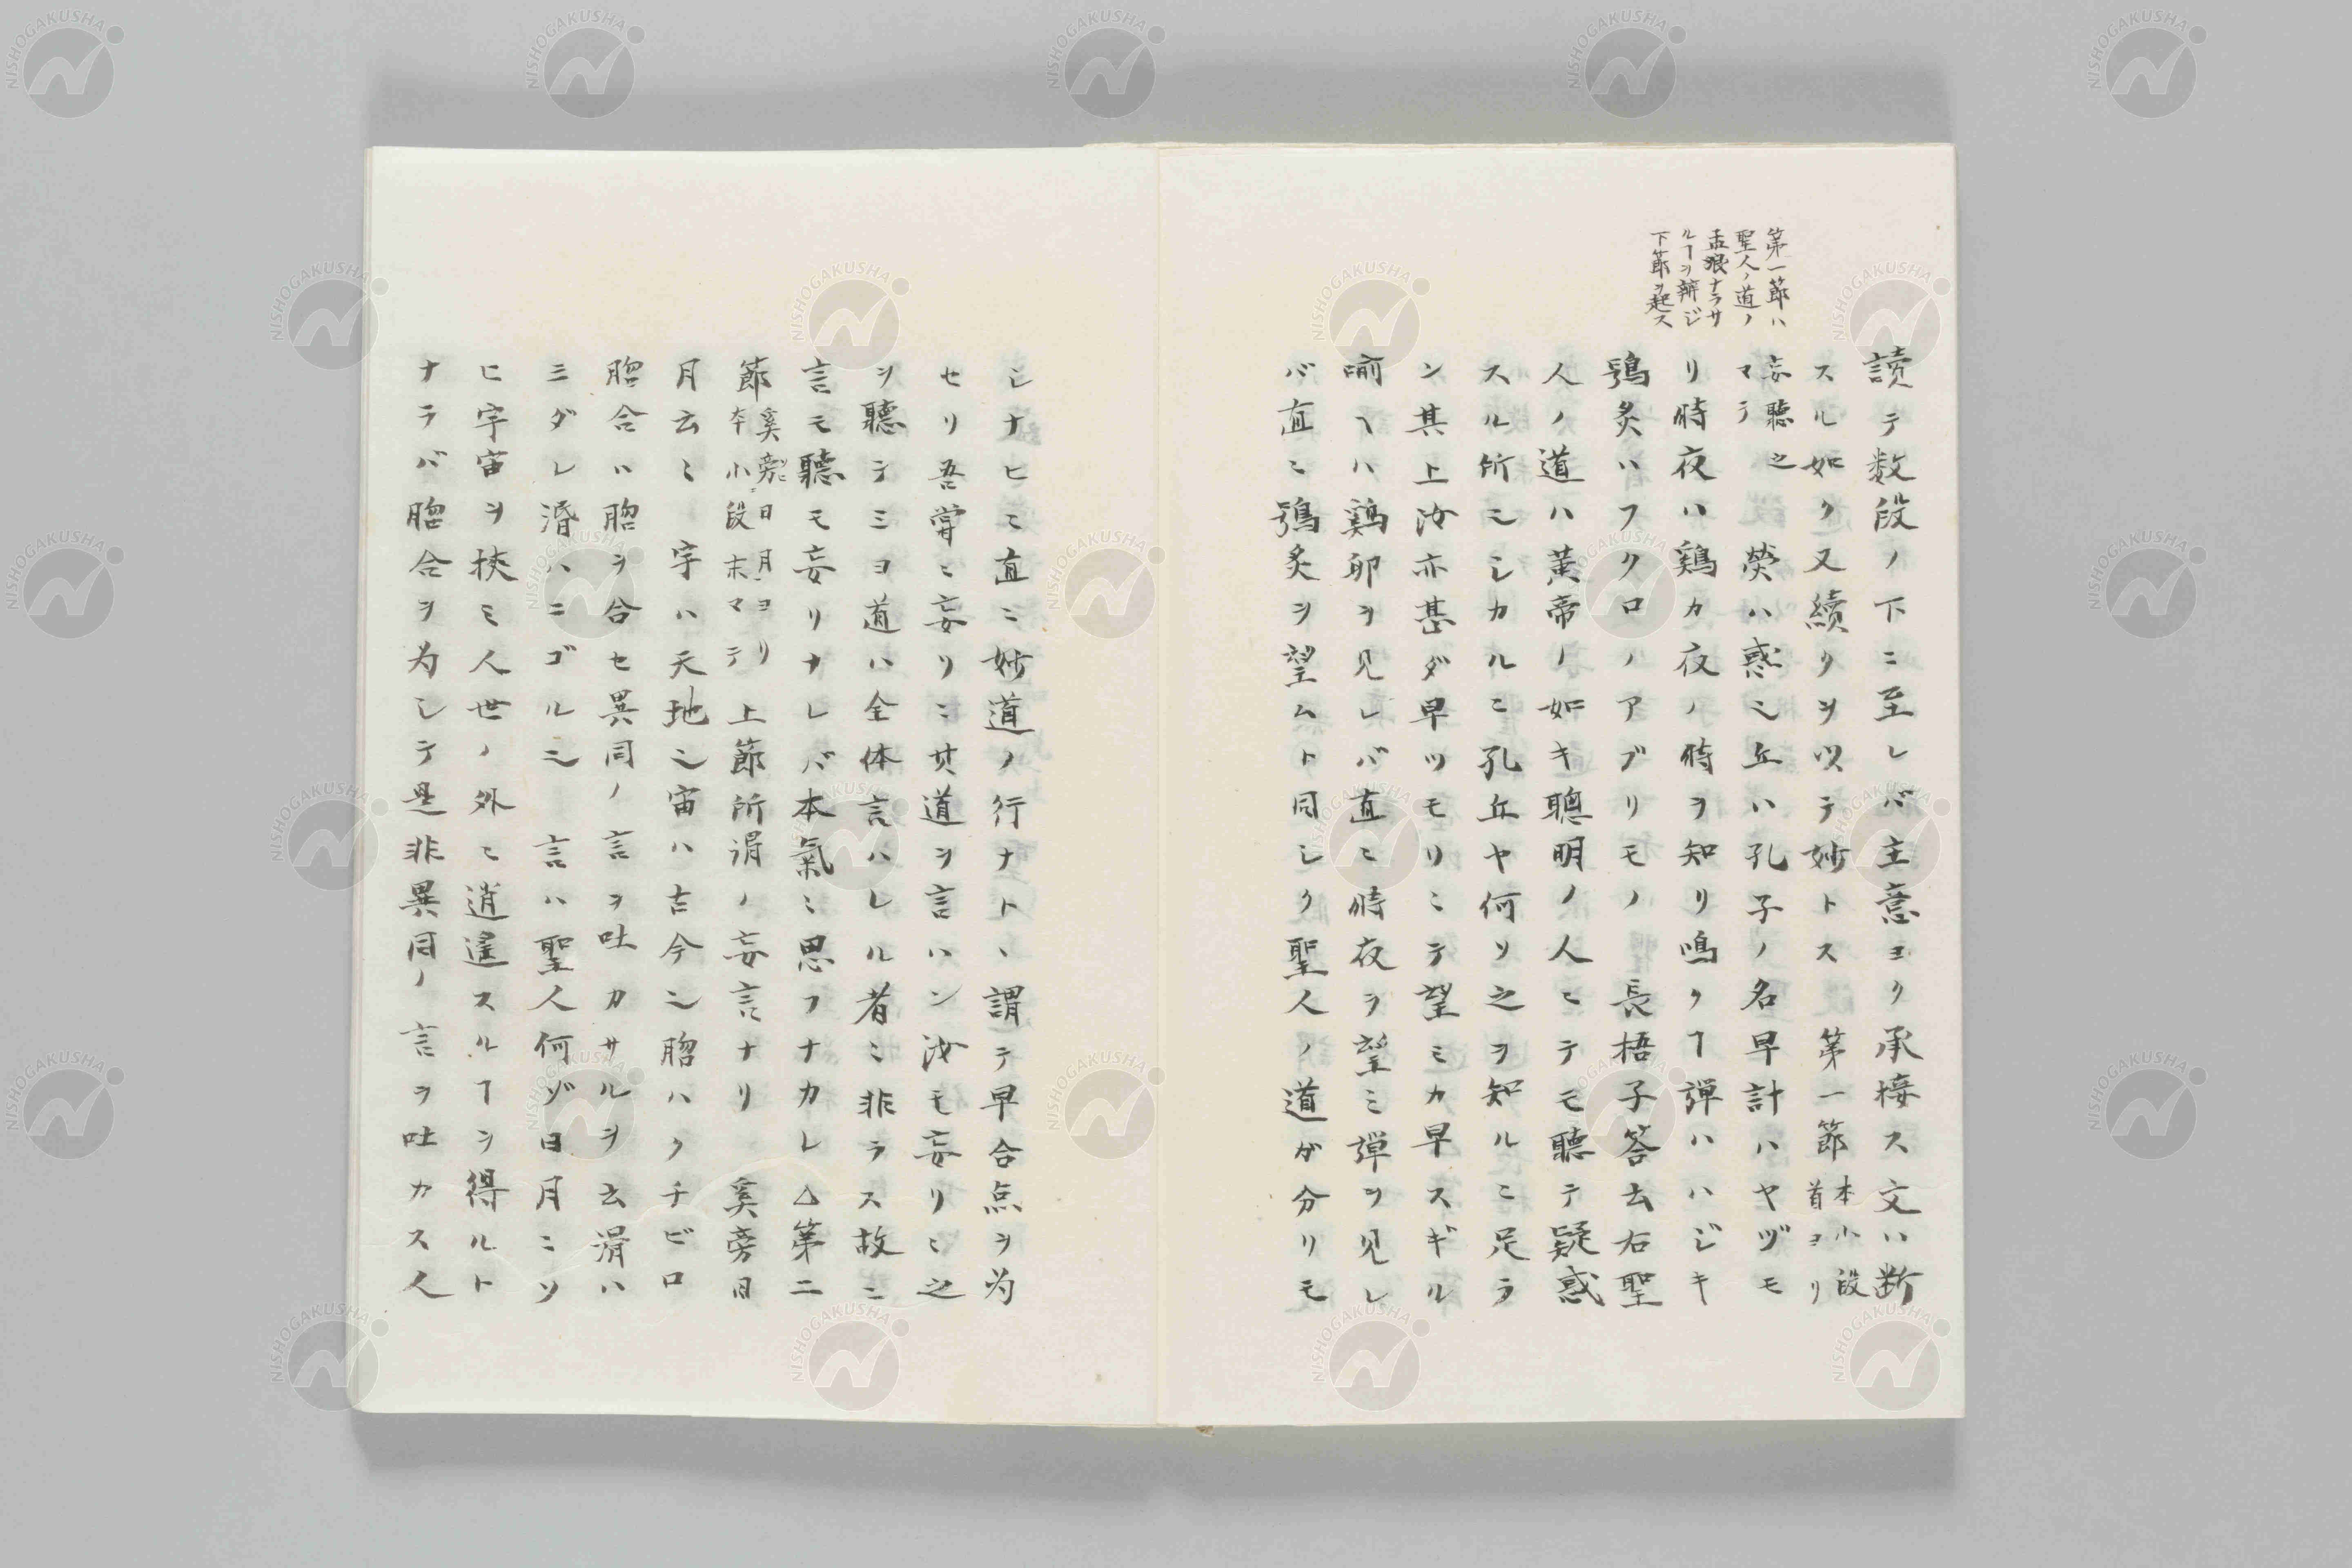 第一節ハ
聖人ノ道ノ
孟浪ナラサ
ルヿヲ辨ジ
下節ヲ起ス
讀テ数段ノ下ニ至レバ主意ヨク承接ス文ハ断
スル如ク又續クヲ以テ妙トス 第一節本小段首ヨリ
妄聽之マテ 熒ハ惑也丘ハ孔子ノ名早計ハヤヅモ
リ時夜ハ鶏カ夜ノ時ヲ知リ鳴クヿ弾ハハジキ
鴞炙ハフクロノアブリモノ 長梧子答云右聖
人ノ道ハ黄帝ノ如キ聰明ノ人ニテモ聽テ疑惑
スル所ニシカルニ孔丘ヤ何ソ之ヲ知ルニ足ラ
ン其上汝亦甚ダ早ツモリニテ望ミカ早スギル
喻ヘハ鶏卵ヲ見レバ直ニ時夜ヲ望ミ弾ヲ見レ
バ直ニ鴞炙ヲ望ムト同シク聖人ノ道ガ分リモ
シナヒニ直ニ妙道ノ行ナト、謂テ早合点ヲ为
セリ吾甞ニ妄リニ其道ヲ言ハン汝モ妄リニ之
ヲ聽テミヨ道ハ全体言ハレル者ニ非ラス故ニ
言モ聽モ妄リナレバ本氣ニ思フナカレ△第二
節奚旁日月ヨリ本小段末マテ 上節所謂ノ妄言ナリ 奚旁日
月云〻 宇ハ天地也宙ハ古今也脗ハクチビロ
脗合ハ脗ヲ合セ異同ノ言ヲ吐カサルヲ云滑ハ
ミダレ涽ハニゴル也 言ハ聖人何ゾ日月ニソ
ヒ宇宙ヲ挾ミ人世ノ外ニ逍遙スルヿヲ得ルト
ナラバ脗合ヲ为シテ是非異同ノ言ヲ吐カス人
NISHOGAKUSHA